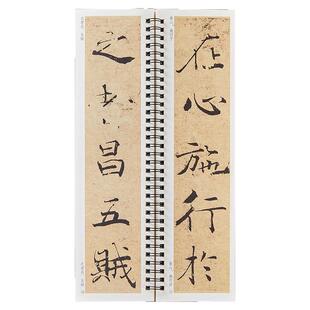 之者昌五賊
在心施行於